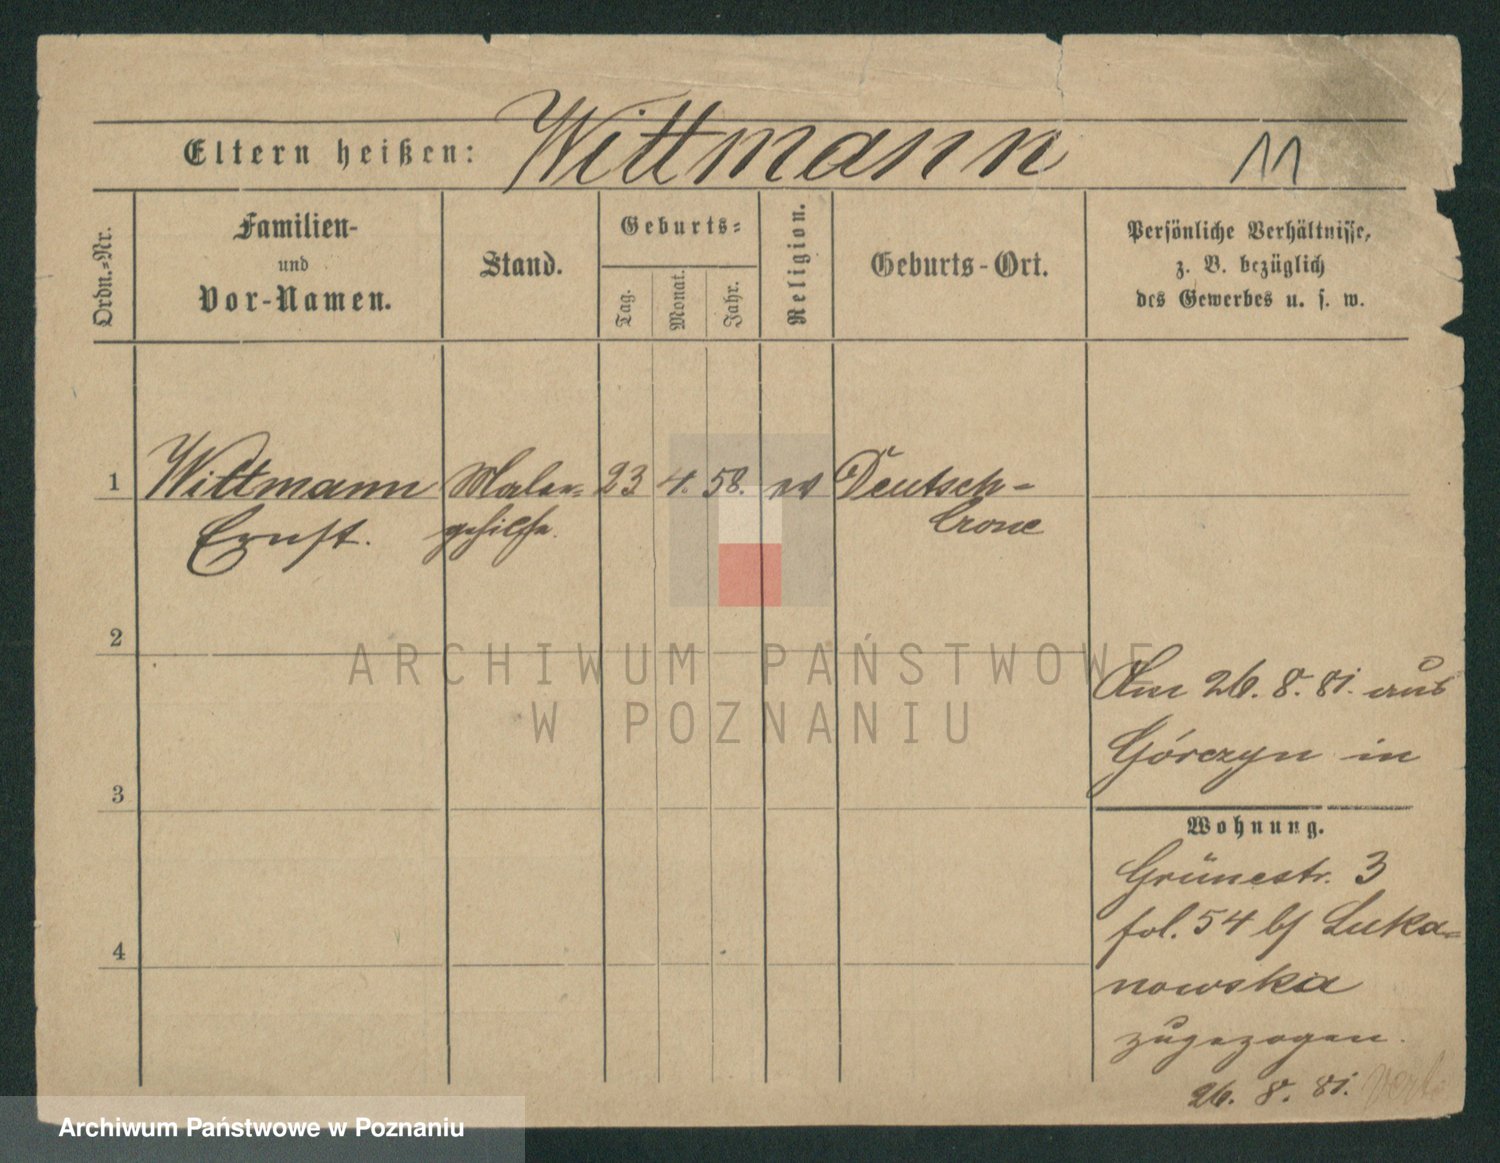 Eltern heißen: Wittmann 11
Ordn.-Nr.
Familien-
und
Vor-Namen.
Stand.
Geburts-
Tag.
Monat.
Jahr.
Religion.
Geburts-Ort.
Persönliche Verhältnisse,
z. B. bezüglich
des Gewerbes u. s. w.
1 Wittmann Maler- 23 4. 58. ev Deutsch-
Ernst. gehilfe. Crone
2
ARCHIWUM PAŃSTWOWE
W POZNANIU
Am 26. 8. 81. aus
Górczyn in
3
Wohnung.
Grünestr. 3
fol. 54 b/ Luka-
nowska
4
zugezogen.
26. 8. 81.
Archiwum Państwowe w Poznaniu